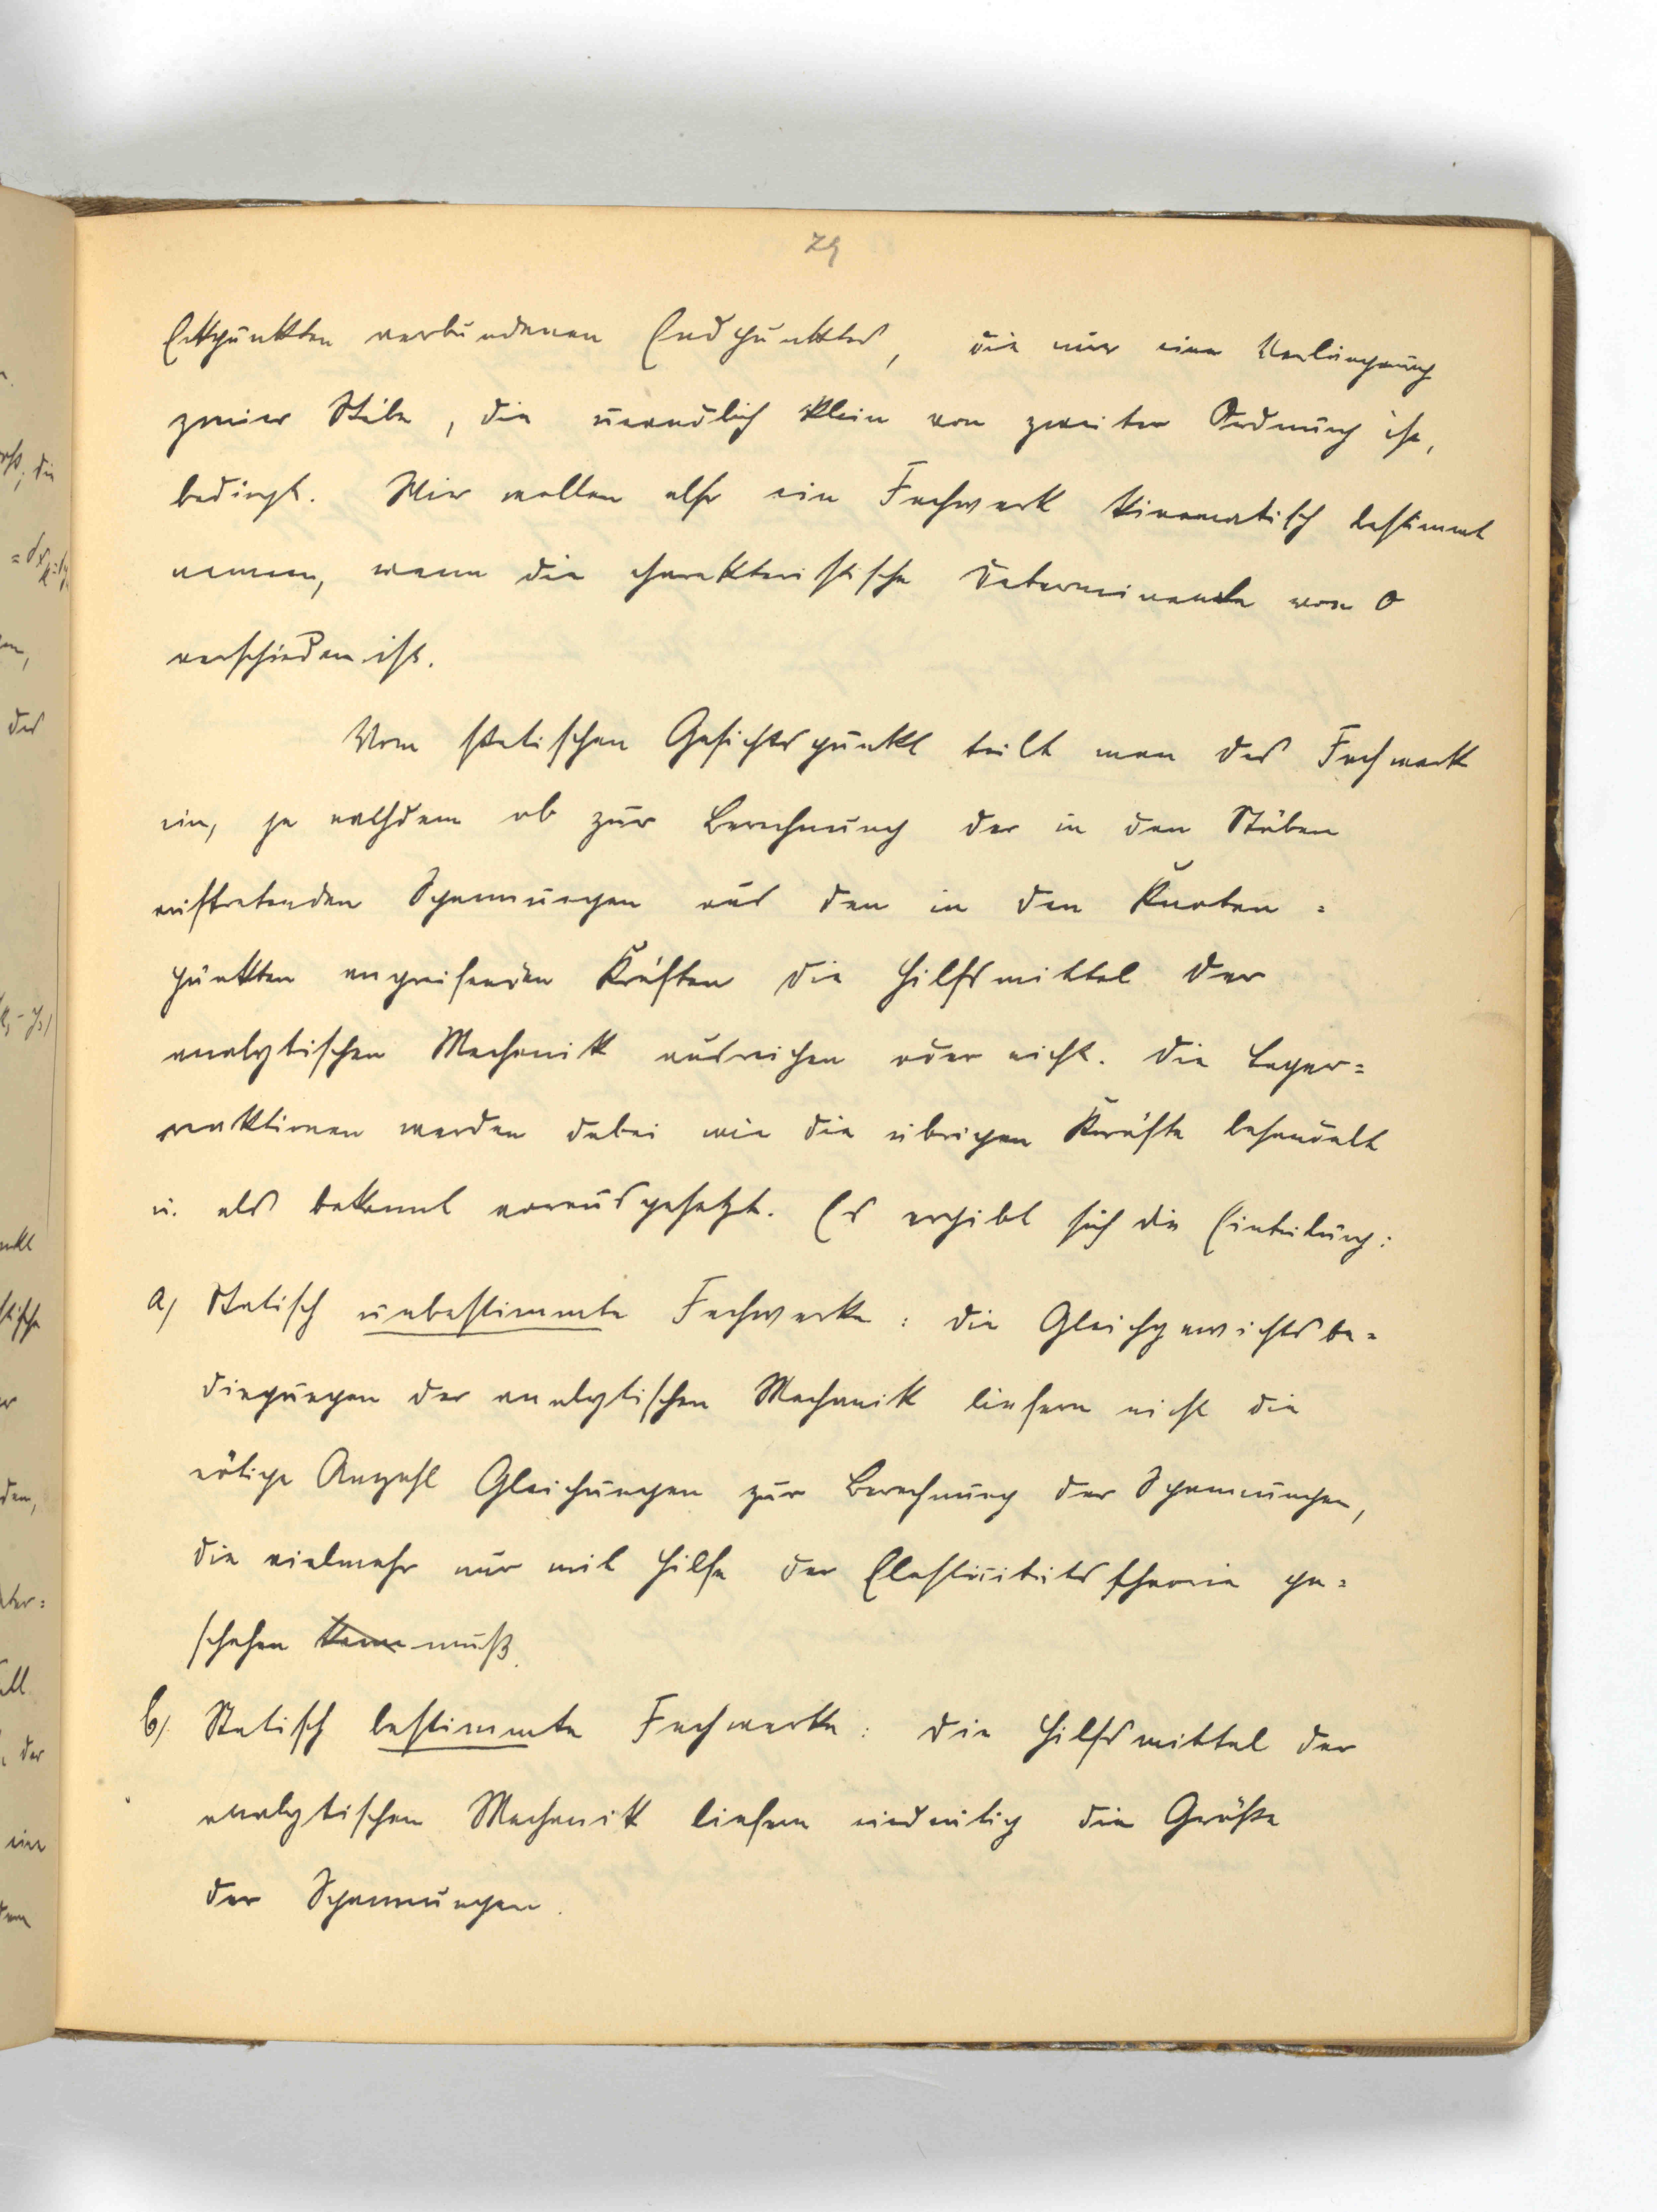 79
Eckpunkten verbundenen Endpunktes, die nur eine Verlängerung
zweier Stäbe, die unendlich klein von zweiter Ordnung ist,
bedingt. Wir wollen also ein Fachwerk kinematisch bestimmt
nennen, wenn die charakteristische Determinante von 0
verschieden ist.
Vom statischen Gesichtspunkt teilt man das Fachwerk
ein, je nachdem ob zur Berechnung der in den Stäben
auftretenden Spannungen aus den in den Knoten=
punkten angreifenden Kräften die Hilfsmittel der
analytischen Mechanik ausreichen oder nicht. Die Lager=
reaktionen werden dabei wie die übrigen Kräfte behandelt
u. als bekannt vorausgesetzt. Es ergibt sich die Einteilung:
a) Statisch unbestimmte Fachwerke: die Gleichgewichtsbe=
dingungen der analytischen Mechanik liefern nicht die
nötige Anzahl Gleichungen zur Berechnung der Spannungen,
die vielmehr nur mit Hilfe der Elasticitätstheorie ge=
schehen kann muß.
b) Statisch bestimmte Fachwerke: die Hilfsmittel der
analytischen Mechanik liefern eindeutig die Größe
der Spannungen.